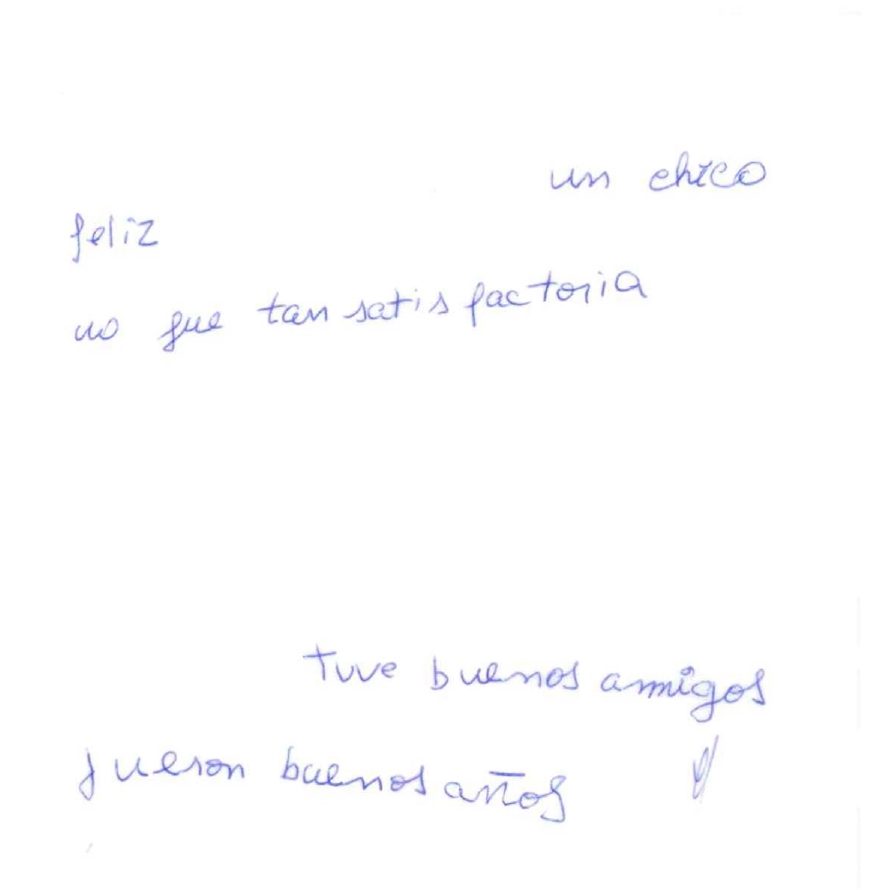 un chico
feliz
no fue tan satisfactoria
tuve buenos amigos
y
fueron buenos años